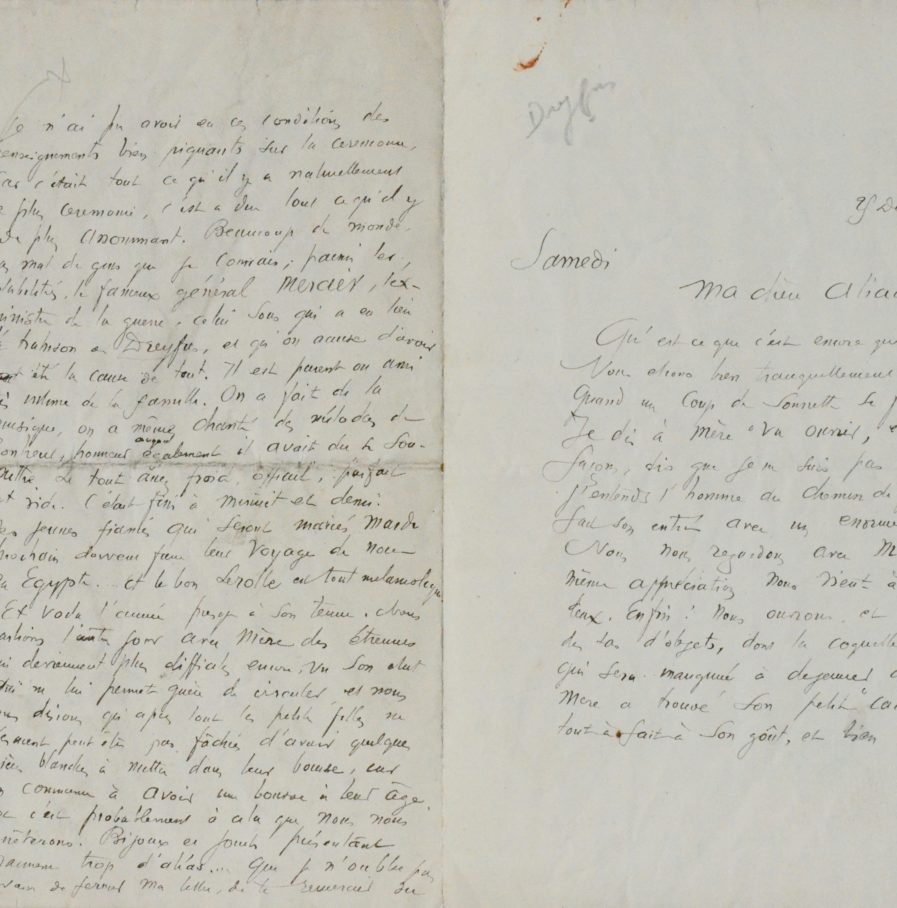 Je n'ai pu avoir en ces conditions des
enseignements bien piquants sur la ceremonie,
car c'était tout ce qu'il y a naturellement
de plus ceremonie, c'est a dire tout ce qu'il y
de plus assommant. Beaucoup de monde,
pas mal de gens que je connais; parmi les
notabilités, le fameux général Mercier, l'ex-
ministre de la guerre, celui sous qui a eu lieu
la trahison de Dreyfus, et qu'on accuse d'avoir
été la cause de tout. Il est parent ou ami
très intime de la famille. On a fait de la
musique, on a même chanté des mélodies de
honneur auquel également il avait du se sou-
mettre. Le tout assez froid, officiel, parfait
et vide. C'était fini à minuit et demi.
Les jeunes fiancés qui seront mariés Mardi
prochain doivent faire leur voyage de noce
en Egypte... et le bon Lerolle en tout melancolique
Et voila l'année presque à son terme. Nous
parlions l'autre jour avec Mère des étrennes
qui deviennent plus difficiles encore, vu son état
qui ne lui permet guère de circuler et nous
nous disions qu'apres tout les petites filles ne
seraient peut être pas fâchées d'avoir quelques
pièces blanches à mettre dans leur bourse, car
on commence à avoir une bourse à leur âge.
c'est probablement à cela que nous nous
arrêterons. Bijoux et jouets présentant
vraiment trop d'aléas... Que je n'oublie pas
avant de fermer ma lettre, de te remercier du
Dreyfus
25 De
Samedi
Ma chère
Qu'est ce que c'est encore que
Nous étions bien tranquillement
Quand un coup de sonnette se f
Je dis à Mère "Va ouvrir,
façon, dis que je ne suis pas
J'entends l'homme du chemin de
fait son entrée avec un énorme
Nous nous regardons avec M
même appréciation nous vient à
deux. Enfin! Nous ouvrons, et
de tas d'objets, dans la coquelle
qui sera mangé à dejeuner
Mère a trouvé son petit "ca
tout à fait à son goût, et bien